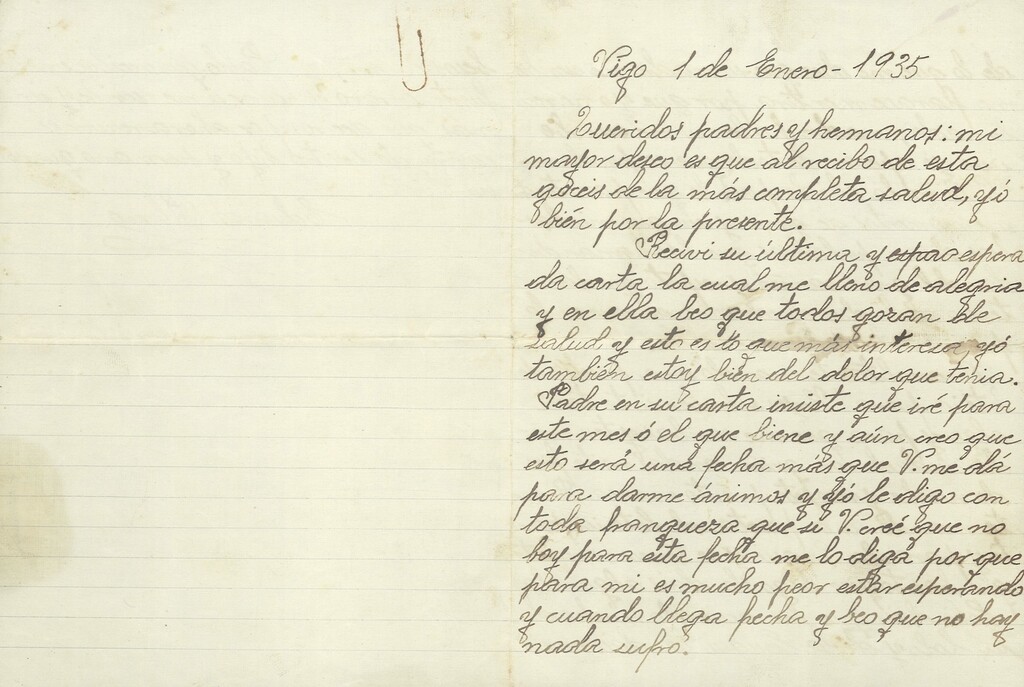 Vigo 1 de Enero - 1935
Queridos padres y hermanos: mi
mayor deseo es que al recibo de esta
goceis de la más completa salud, yó
bién por la presente.
Recivi su última y espera
da carta la cual me lleno de alegria
y en ella beo que todos gozan de
salud y esto es lo que más interesa, yó
también estoy bién del dolor que tenia.
Padre en su carta insiste que iré para
este mes ó el que biene y aún creo que
esto será una fecha más que V. me dá
para darme ánimos y yó le digo con
toda franqueza que si V. creé que no
boy para esta fecha me lo diga por que
para mi es mucho peor estar esperando
y cuando llega fecha y beo que no hay
nada sufro.